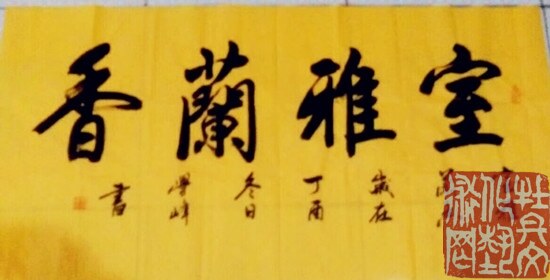 室雅蘭香
歲在
丁酉
冬日
學峰
書